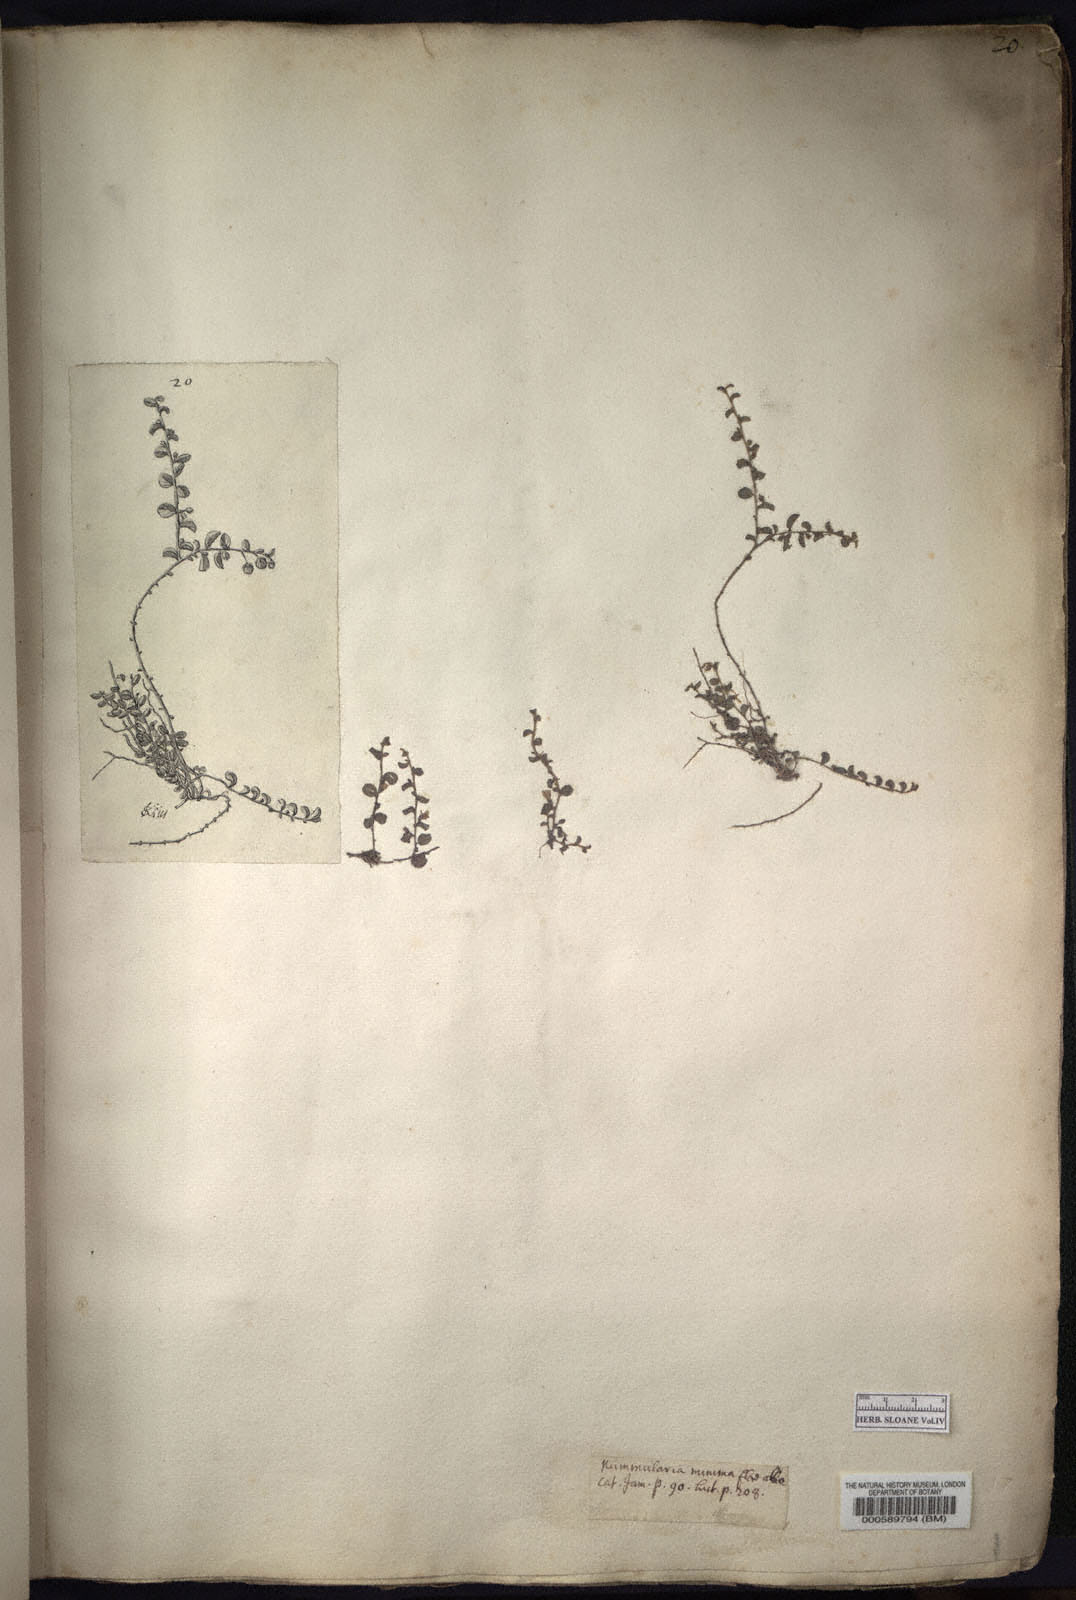 20.
20
Nummularia minima flore albo
Cat. Jam. p. 90. hist. p. 208.
HERB. SLOANE Vol.IV
THE NATURAL HISTORY MUSEUM, LONDON
DEPARTMENT OF BOTANY
000589794 (BM)